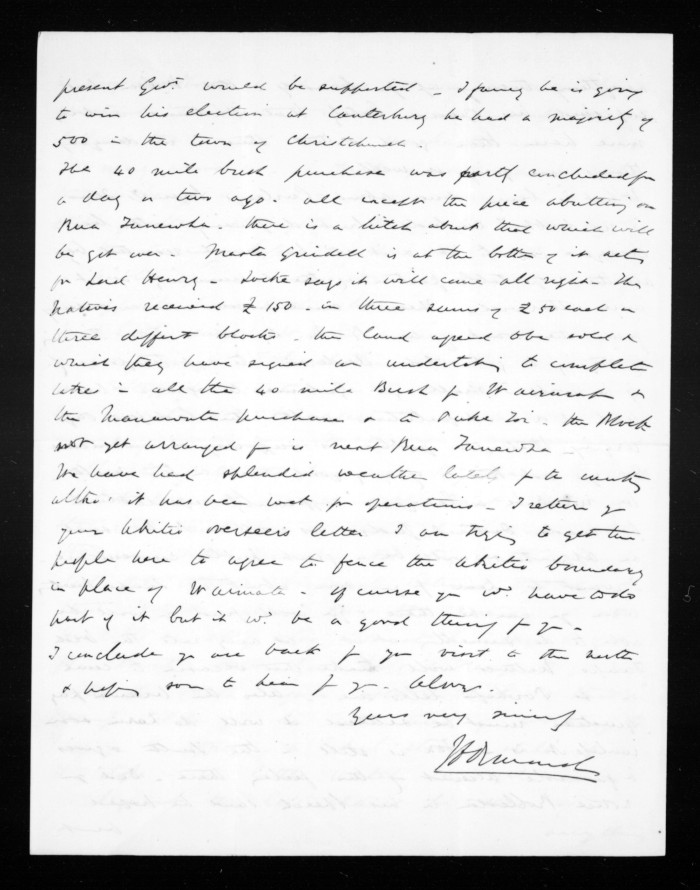 present Govt. would be supported - I fancy he is going
to win his election at Canterbury he had a majority of
500 in the town of Christchurch.
The 40 mile bush purchase was partly concluded for
a day or two ago. all except the piece abutting on
Rua Tanewha. there is a hitch about that which will
be got over. Master Grindell is at the bottom of it acting
for Lord Henry. Locke says it will come all right. The
Natives received £150. in three sums of £50 each on
three different blocks. the land agreed to be sold &
which they have signed an undertaking to complete
takes in all the 40 mile Bush fr Wairarapa &
the Manawatu purchase & to Puke Toi. the Block
not yet arranged for is next Rua Tanewha -
We have had splendid weather lately for the country
altho' it has been wet for operations - I return you
your Akitio overseers letter I am trying to get the
people here to agree to fence the Akitio boundary
in place of Waimate - of course you wd. have to do
part of it but it wd. be a good thing for you -
I conclude you are back fr your visit to the north
& hoping soon to hear fr you. Always
Yours very sincerely
J D Ormond